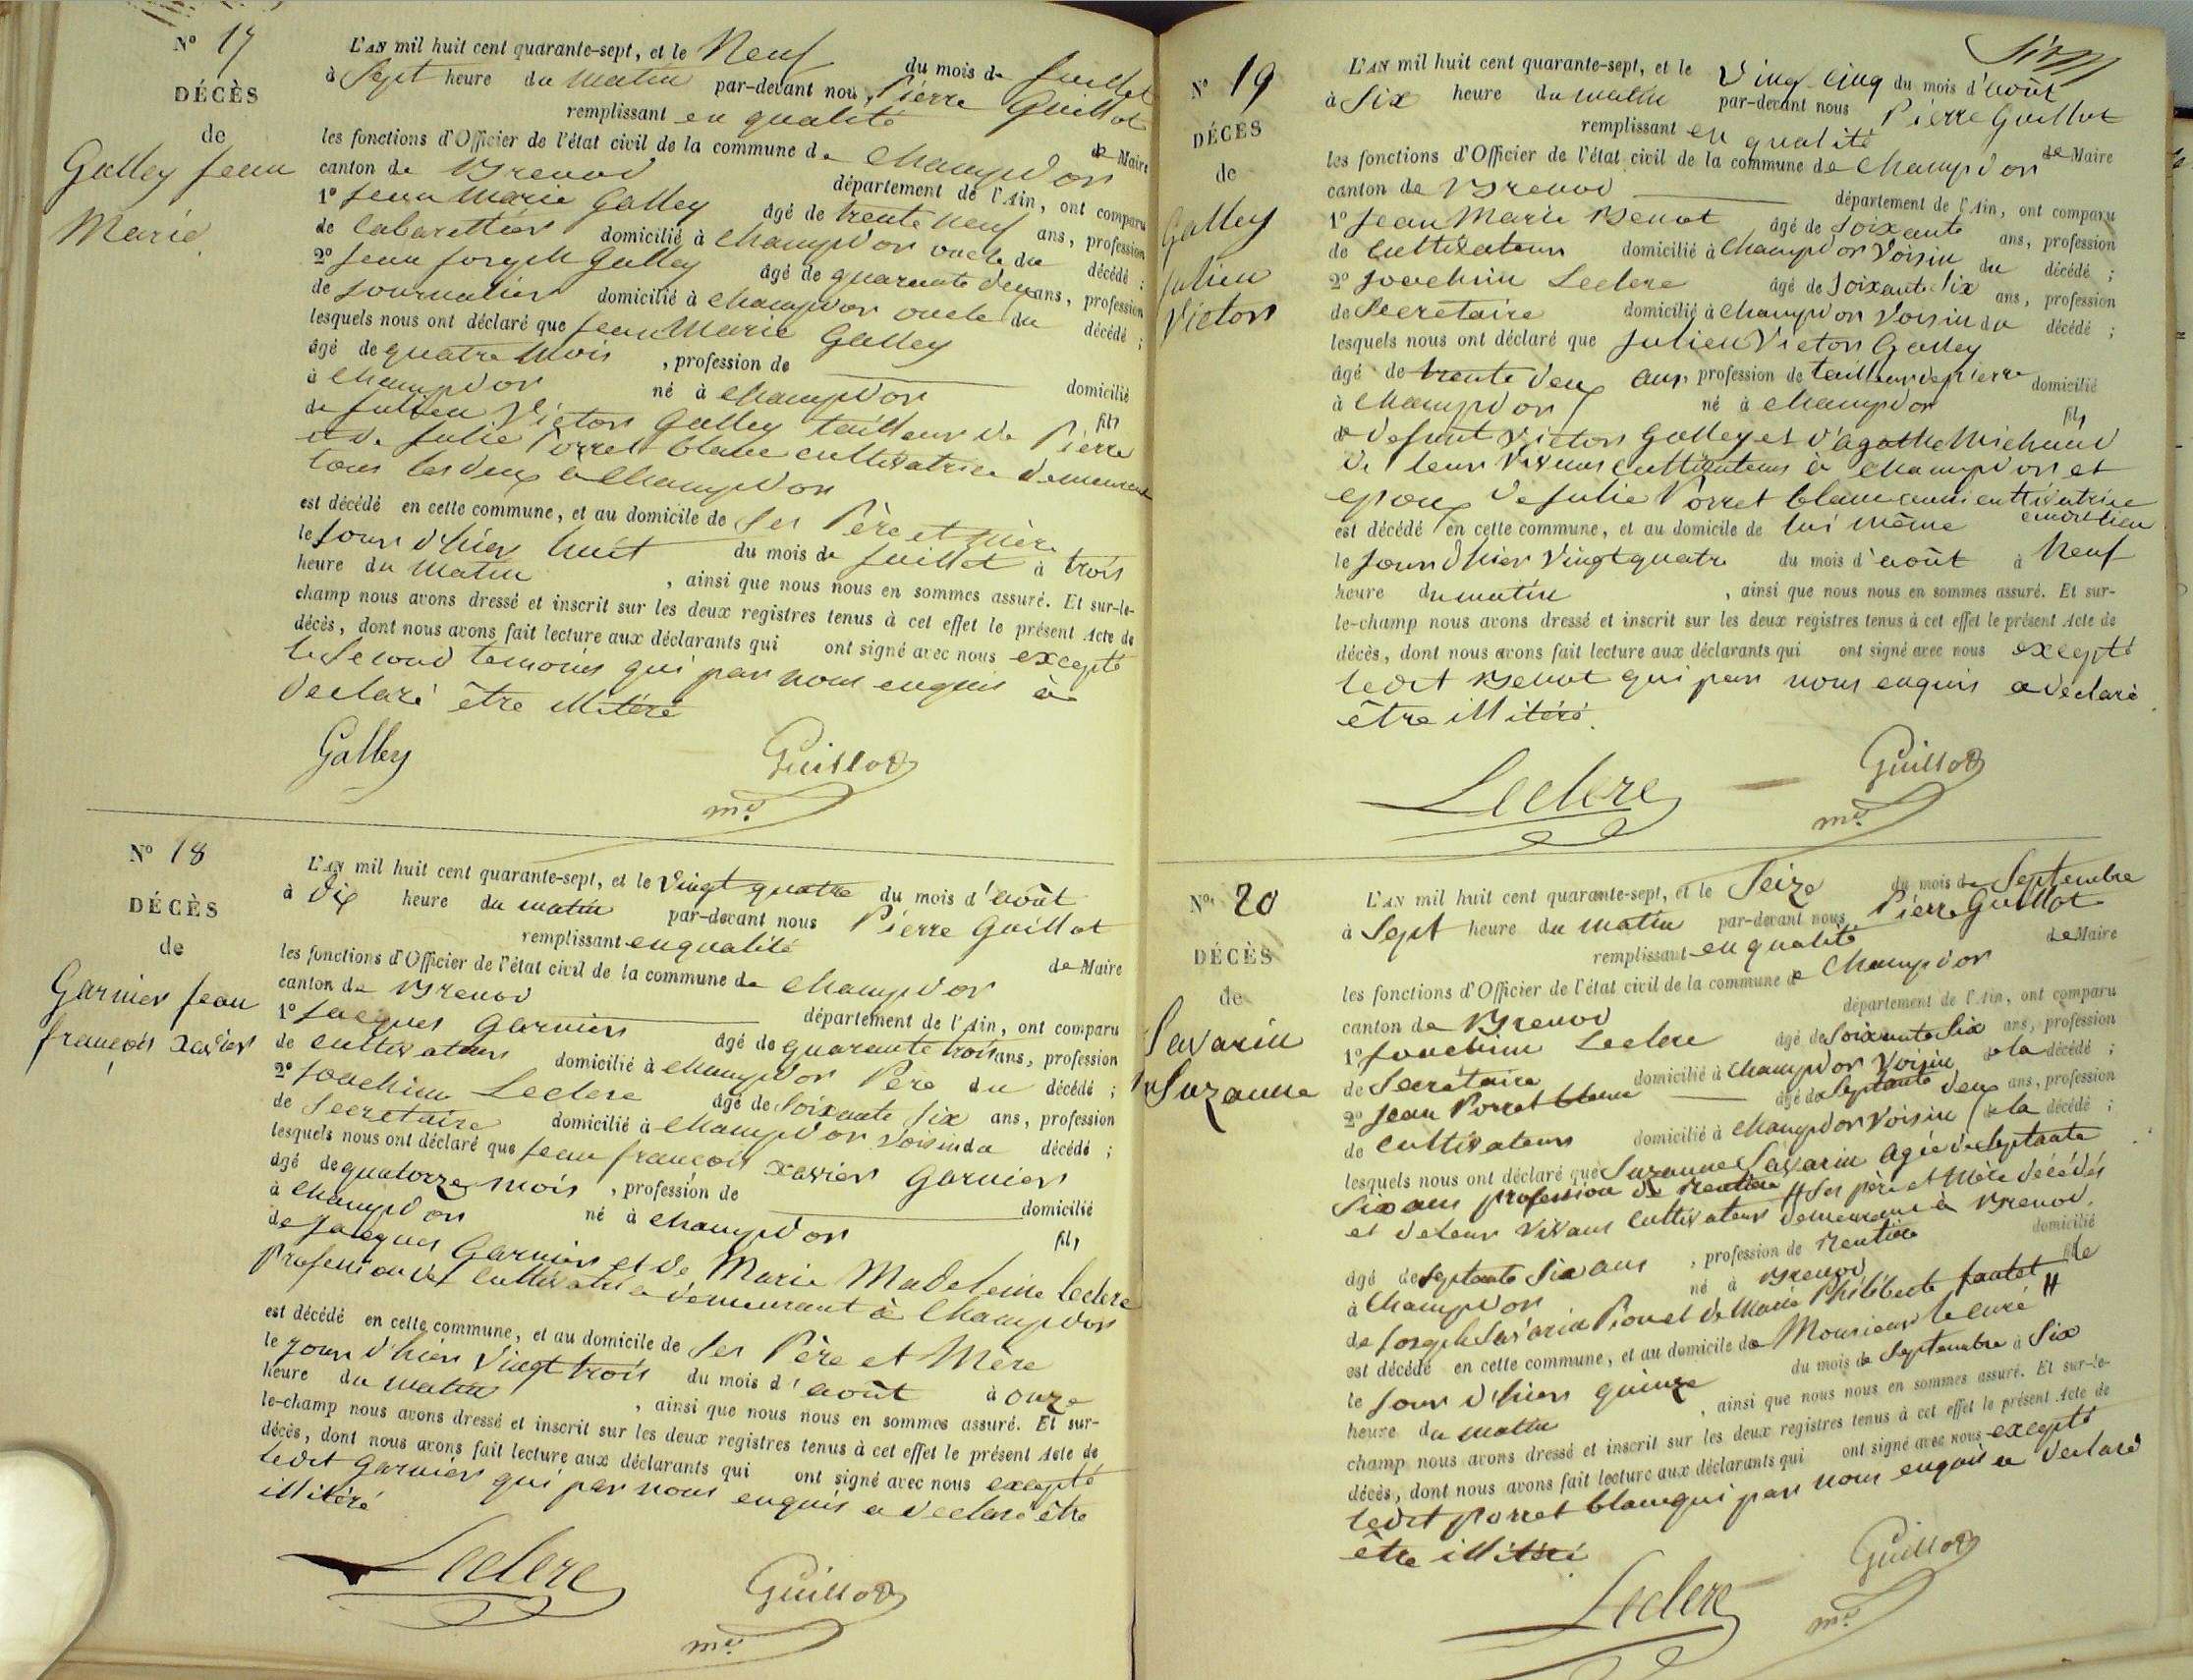 N° 17
DÉCÈS
de
Galley Jean
Marie
L'AN mil huit cent quarante-sept, et le Neuf du mois de Juillet
à Sept heure du matin par-devant nous Pierre Guillot
remplissant en qualité de Maire
les fonctions d'Officier de l'état civil de la commune de Champdor
canton de Brenod département de l'Ain, ont comparu
1° Jean Marie Galley âgé de trente neuf ans, profession
de Cabarettier domicilié à Champdor oncle du décédé ;
2° Jean Joseph Galley âgé de quarante deux ans, profession
de Journalier domicilié à Champdor oncle du décédé ;
lesquels nous ont déclaré que Jean Marie Galley
âgé de quatre mois , profession de domicilié
à Champdor né à Champdor fils
de Julien Victor Galley tailleur de Pierre
et de Julie Porret blanc cultivatrice demeurant
tous les deux à Champdor
est décédé en cette commune, et au domicile de Ses Père et Mère
le Jour d'hier huit du mois de Juillet à trois
heure du Matin , ainsi que nous nous en sommes assuré. Et sur-le-
champ nous avons dressé et inscrit sur les deux registres tenus à cet effet le présent Acte de
décès, dont nous avons fait lecture aux déclarants qui ont signé avec nous excepté
le Second temoins qui par nous enquis à
déclaré être illitéré
Galley Guillot
me
N° 18
DÉCÈS
de
Garnier Jean
françois Xavier
L'AN mil huit cent quarante-sept, et le Vingt quatre du mois d'août
à Dix heure du matin par-devant nous Pierre Guillot
remplissant en qualité de Maire
les fonctions d'Officier de l'état civil de la commune de Champdor
canton de Brenod département de l'Ain, ont comparu
1° Jacques Garnier âgé de quarante trois ans, profession
de Cultivateur domicilié à Champdor Père du décédé ;
2° Joachim Leclerc âgé de Soixante Six ans, profession
de Secretaire domicilié à Champdor Voisin du décédé ;
lesquels nous ont déclaré que Jean françois Xavier Garnier
âgé de quatorze mois , profession de domicilié
à Champdor né à Champdor fils
de Jacques Garnier et de Marie Madeleine Leclerc
demeurant à Champdor
est décédé en cette commune, et au domicile de Ses Père et Mère
le Jour d'hier Vingt trois du mois d'août à onze
heure du matin , ainsi que nous nous en sommes assuré. Et sur-
le-champ nous avons dressé et inscrit sur les deux registres tenus à cet effet le présent Acte de
décès, dont nous avons fait lecture aux déclarants qui ont signé avec nous excepté
ledit Garnier qui par nous enquis a déclaré être
illitéré
Leclerc Guillot
me
N° 19
DÉCÈS
de
Galley
Julien
Victor
L'AN mil huit cent quarante-sept, et le Vingt Cinq du mois d'août
à Six heure du matin par-devant nous Pierre Guillot
remplissant en qualité de Maire
les fonctions d'Officier de l'état civil de la commune de Champdor
canton de Brenod département de l'Ain, ont comparu
1° Jean Marie Benot âgé de Soixante ans, profession
de Cultivateur domicilié à Champdor Voisin du décédé ;
2° Joachim Leclerc âgé de Soixante Six ans, profession
de Secretaire domicilié à Champdor Voisin du décédé ;
lesquels nous ont déclaré que Julien Victor Galley
âgé de trente deux ans, profession de tailleur de pierre domicilié
à Champdor né à Champdor fils
de defunt Victor Galley et d'agathe Michaud
de leur Vivans Cultivateurs à Champdor et
epoux de Julie Porret blanc aussi cultivatrice
est décédé en cette commune, et au domicile de lui même
le Jour d'hier Vingt quatre du mois d'août à Neuf
heure du matin , ainsi que nous nous en sommes assuré. Et sur-
le-champ nous avons dressé et inscrit sur les deux registres tenus à cet effet le présent Acte de
décès, dont nous avons fait lecture aux déclarants qui ont signé avec nous excepté
ledit Benot qui par nous enquis a déclaré
être illitéré.
Leclerc Guillot
me
N° 20
DÉCÈS
de
Savarin
Suzanne
L'AN mil huit cent quarante-sept, et le Seize du mois de Septembre
à Sept heure du matin par-devant nous Pierre Guillot
remplissant en qualité de Maire
les fonctions d'Officier de l'état civil de la commune de Champdor
canton de Brenod département de l'Ain, ont comparu
1° Joachim Leclerc âgé de Soixante Six ans, profession
de Secrétaire domicilié à Champdor Voisin de la décédé ;
2° Jean Porret blanc âgé de Septante deux ans, profession
de Cultivateur domicilié à Champdor Voisin de la décédé ;
lesquels nous ont déclaré que Suzanne Savarin Agée de Septante
Six ans profession de Rentière # Ses père et Mère décédés
et de leur Vivans Cultivateur demeurant à Brenod.
âgé de Septante Six ans , profession de Rentière domicilié
à Champdor né à Brenod fille
de Joseph Savarin Pion et de Marie Philiberte fautet #
est décédé en cette commune, et au domicile de Monsieur le curé
le Jour d'hier quinze du mois de Septembre à Six
heure du matin , ainsi que nous nous en sommes assuré. Et sur-le-
champ nous avons dressé et inscrit sur les deux registres tenus à cet effet le présent Acte de
décès, dont nous avons fait lecture aux déclarants qui ont signé avec nous excepté
ledit porret blanc qui par nous enquis a déclaré
être illitéré
Leclerc Guillot
me